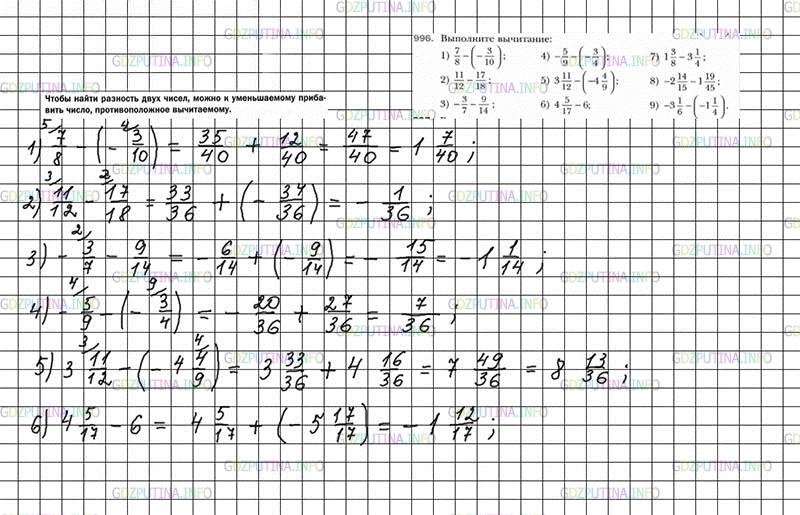 GDZPUTINA.INFO
996. Выполните вычитание:
1) 7/8 − (−3/10); 4) −5/9 − (−3/4); 7) 1 3/8 − 3 1/4;
2) 11/12 − 17/18; 5) 3 11/12 − (−4 4/9); 8) −2 14/15 − 1 19/45;
3) −3/7 − 9/14; 6) 4 5/17 − 6; 9) −3 1/6 − (−1 1/4).
Чтобы найти разность двух чисел, можно к уменьшаемому приба-
вить число, противоположное вычитаемому.
1) 5/ 7/8 − (− 4/ 3/10) = 35/40 + 12/40 = 47/40 = 1 7/40 ;
2) 3/ 11/12 − 2/ 17/18 = 33/36 + (− 34/36) = − 1/36 ;
3) − 2/ 3/7 − 9/14 = − 6/14 + (− 9/14) = − 15/14 = −1 1/14 ;
4) − 4/ 5/9 − (− 9/ 3/4) = − 20/36 + 27/36 = 7/36 ;
5) 3 3/ 11/12 − (− 4 4/ 4/9) = 3 33/36 + 4 16/36 = 7 49/36 = 8 13/36 ;
6) 4 5/17 − 6 = 4 5/17 + (− 5 17/17) = − 1 12/17 ;